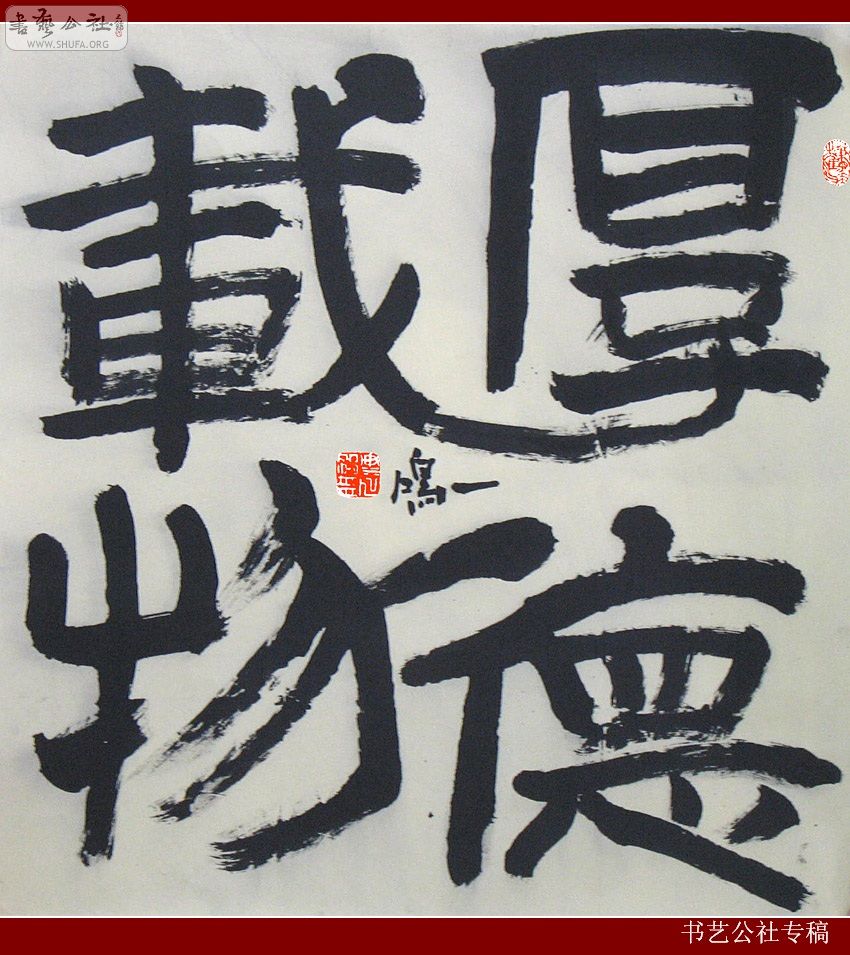 書藝公社
WWW.SHUFA.ORG
厚德
載物
一鳴
书艺公社专稿